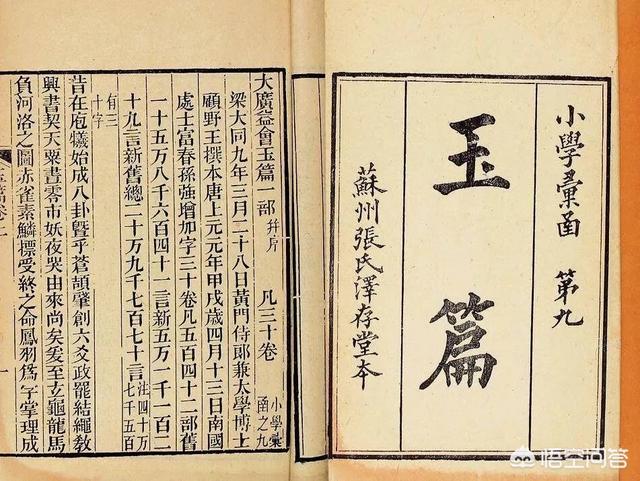 小學彙函 第九
玉篇
蘇州張氏澤存堂本
大廣益會玉篇一部 并序 凡三十卷 小學彙函之九
梁大同九年三月二十八日黃門侍郎兼太學博士
顧野王撰本唐上元元年甲戌歲四月十三日南國
處士富春孫強增加字三十卷凡五百四十二部舊
一十五萬八千六百四十一言新五萬一千一百二
十九言新舊總二十萬九千七百七十言 注四十萬七千五百
有三十字
昔在庖犧始成八卦暨乎蒼頡肇創六爻政罷結繩教
興書契天粟晝零市妖夜哭由來尚矣爰至玄龜龍馬
負河洛之圖赤雀素鱗摽受終之命鳳羽為字掌理成
一
悟空问答